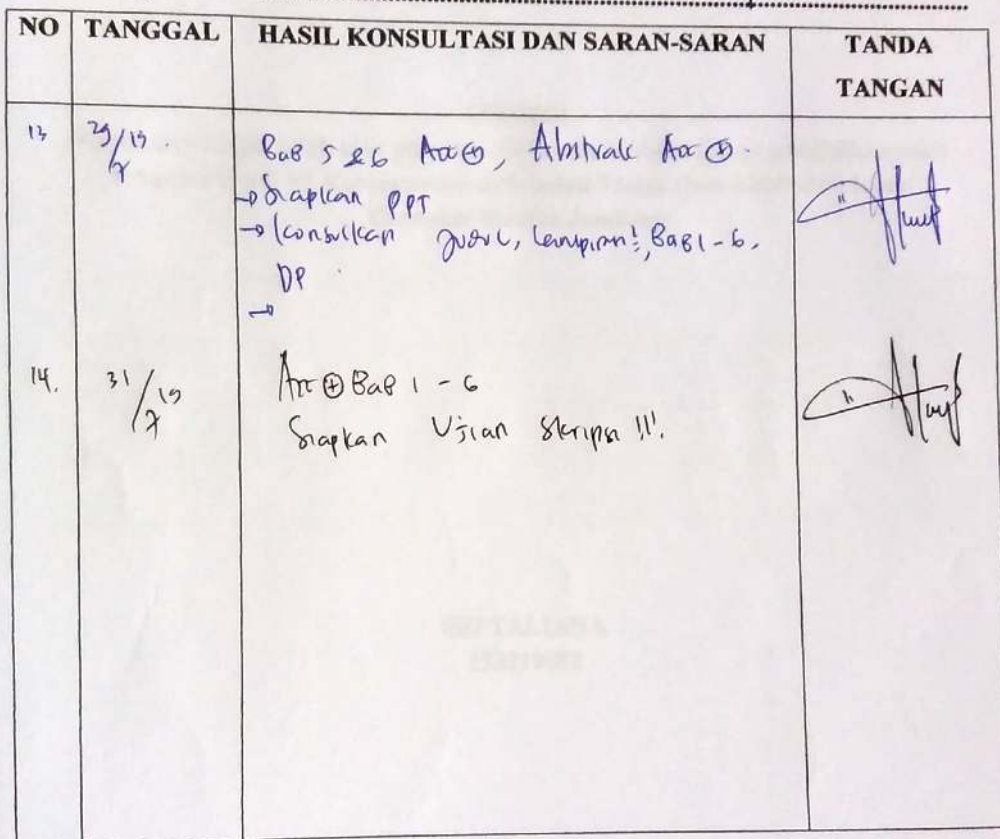 NO TANGGAL HASIL KONSULTASI DAN SARAN-SARAN TANDA TANGAN
13 29/7 19. Bab 5 & 6 Acc ⊕, Abstrak Acc ⊕.
→ Siapkan PPT
→ Konsulkan Judul, Lampiran², Bab 1 - 6,
DP
→
14. 31/7 19 Acc ⊕ Bab 1 - 6
Siapkan Ujian Skripsi !!!